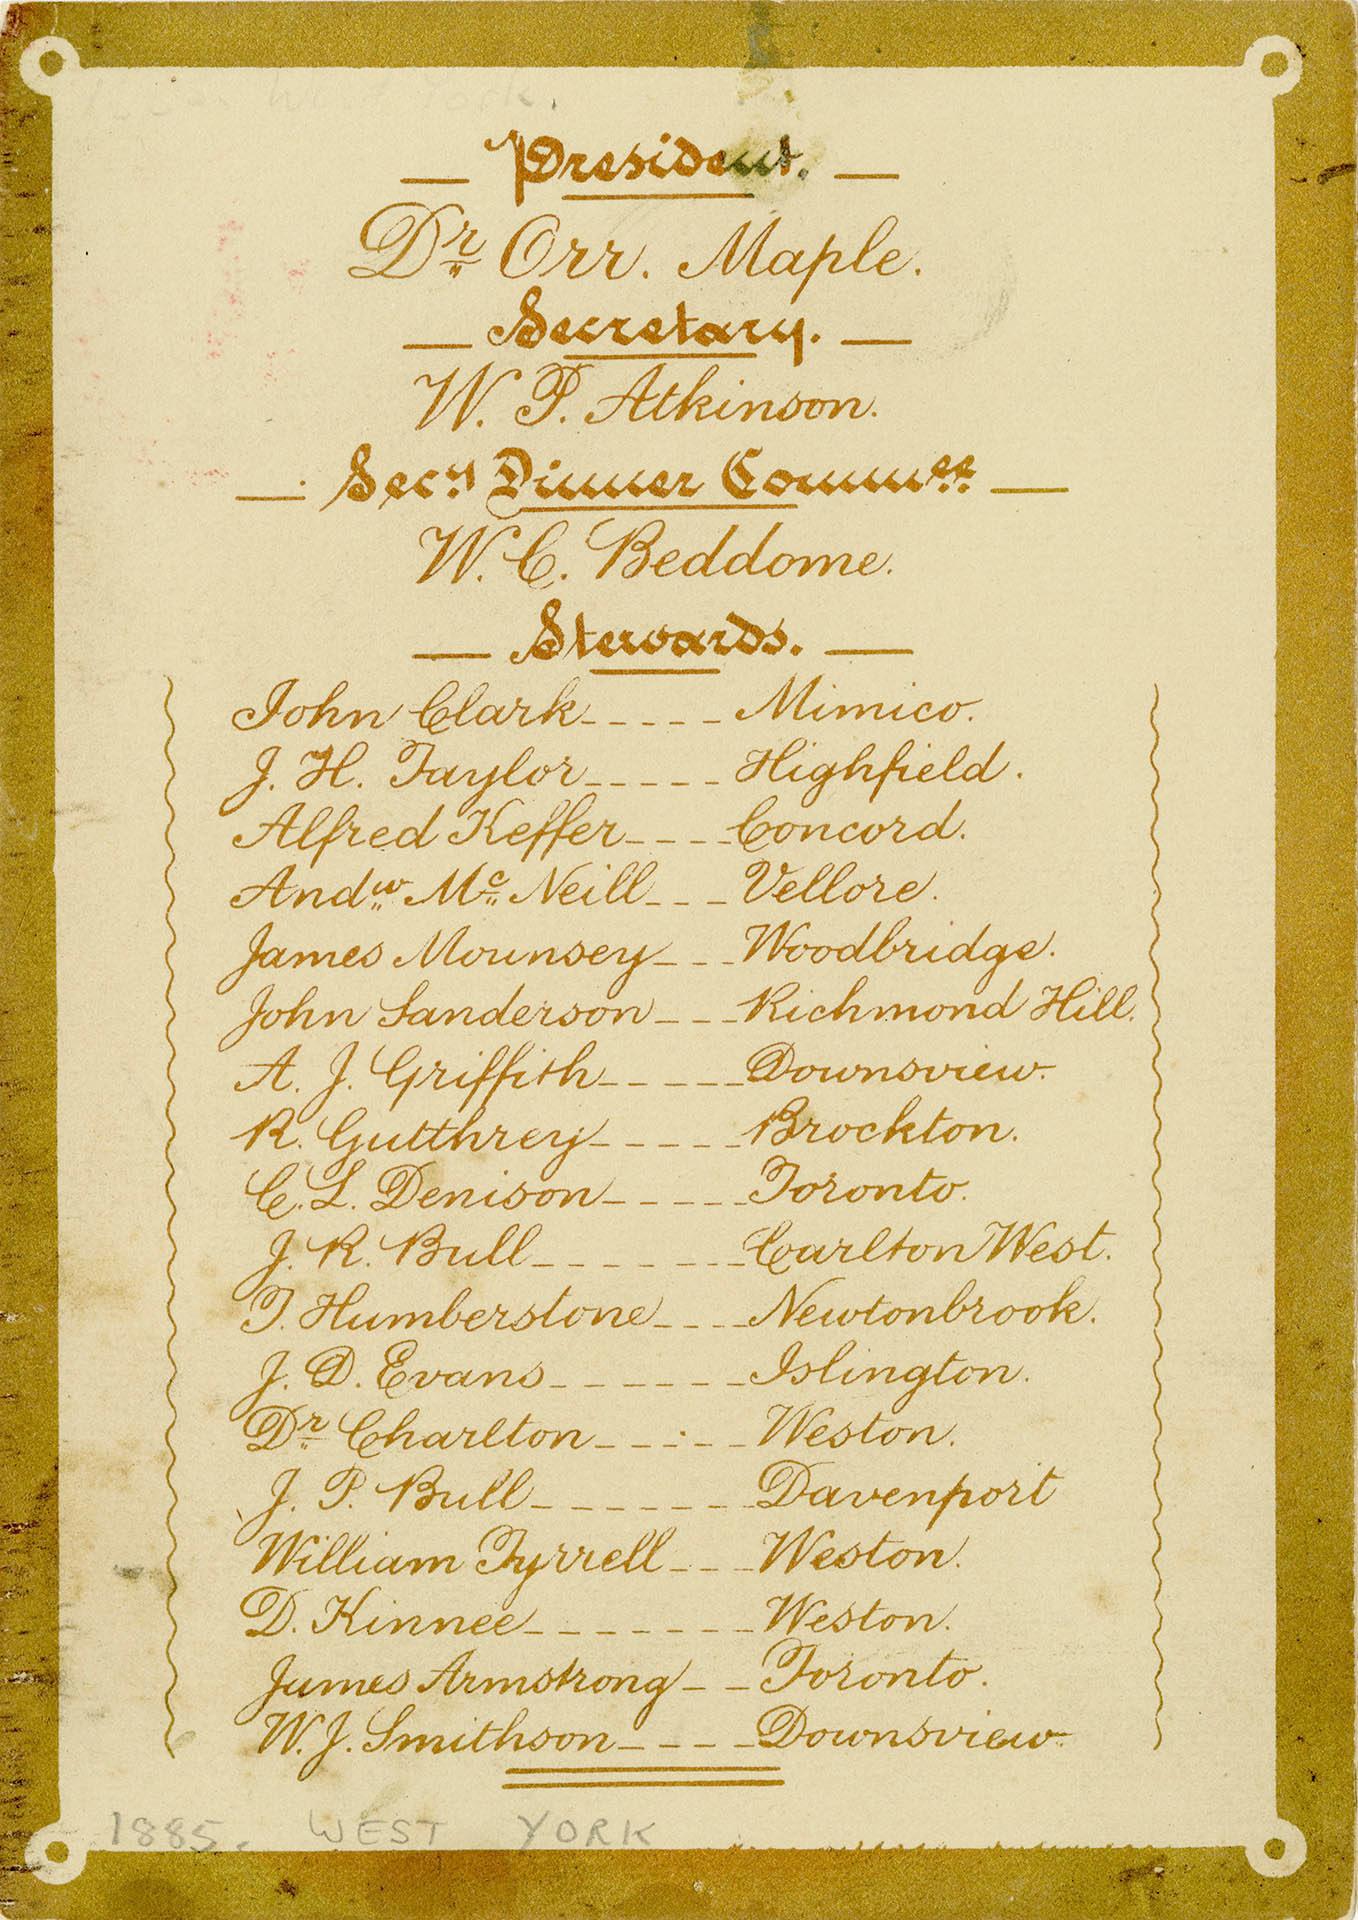 West York.
President.
Dr Orr. Maple.
Secretary.
W. P. Atkinson.
Secy Dinner Commee
W. C. Beddome.
Stewards.
John Clark Mimico.
J. H. Taylor Highfield.
Alfred Keffer Concord.
Andw Mc Neill Vellore.
James Mounsey Woodbridge.
John Sanderson Richmond Hill.
A. J. Griffith Downsview.
R. Gutthrey Brockton.
C. L. Denison Toronto.
J. R. Bull Carlton West.
T. Humberstone Newtonbrook.
J. D. Evans Islington.
Dr Charlton Weston.
J. P. Bull Davenport
William Tyrrell Weston.
D. Kinnee Weston.
James Armstrong Toronto.
W. J. Smithson Downsview
1885. WEST YORK